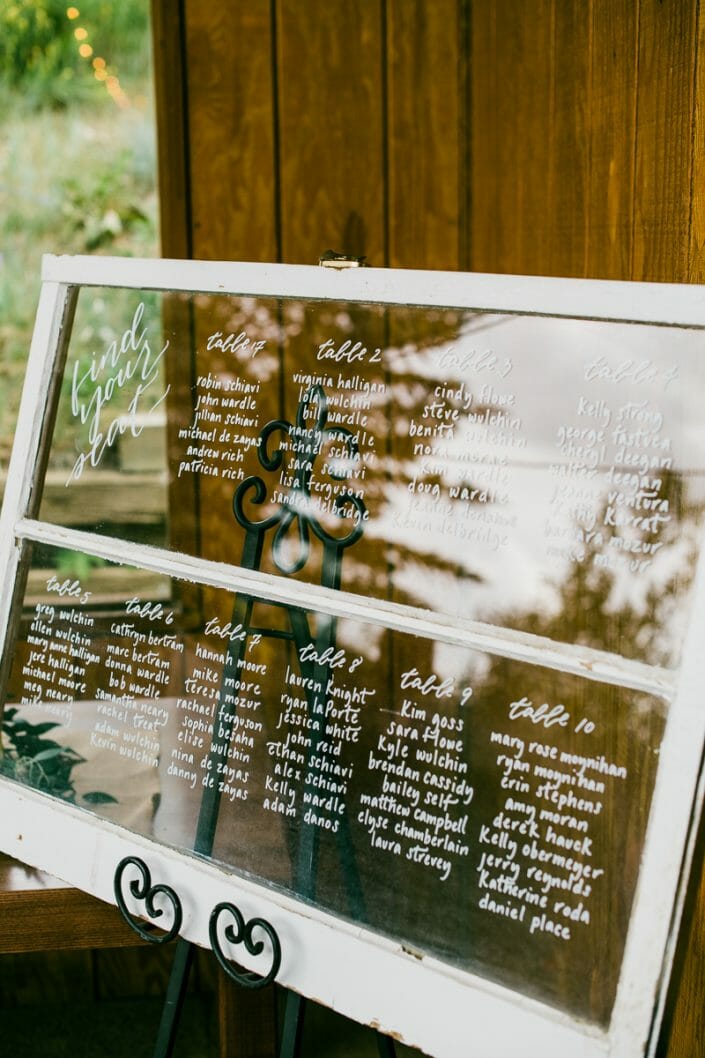 find
your
seat
table 17
robin schiavi
john wardle
jillian schiavi
michael de zayas
andrew rich
patricia rich
table 2
virginia halligan
lola wulchin
bill wardle
nancy wardle
michael schiavi
sara schiavi
lisa ferguson
sandra delbridge
table 3
cindy flowe
steve wulchin
benita wulchin
nora
kim wardle
doug wardle
kevin delbridge
table 4
kelly strong
george
cheryl deegan
walter deegan
jenna ventura
kathy karrat
barbara mozur
mozur
table 5
greg wulchin
ellen wulchin
mary anne halligan
jere halligan
michael moore
meg neary
mike neary
table 6
cathryn bertram
marc bertram
donna wardle
bob wardle
samantha neary
rachel treat
adam wulchin
kevin wulchin
table 7
hannah moore
mike moore
teresa mozur
rachael ferguson
sophia besaha
elise wulchin
nina de zayas
danny de zayas
table 8
lauren knight
ryan laporte
jessica white
john reid
ethan schiavi
alex schiavi
kelly wardle
adam danos
table 9
kim goss
sara flowe
kyle wulchin
brendan cassidy
bailey self
matthew campbell
elyse chamberlain
laura strevey
table 10
mary rose moynihan
ryan moynihan
erin stephens
amy moran
derek hauck
kelly obermeyer
jerry reynolds
katherine roda
daniel place